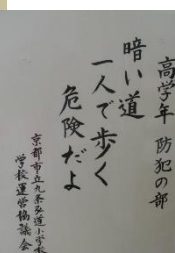 高学年 防犯の部
暗い道
一人で歩く
危険だよ
京都市立九条弘道小学校
学校運営協議会